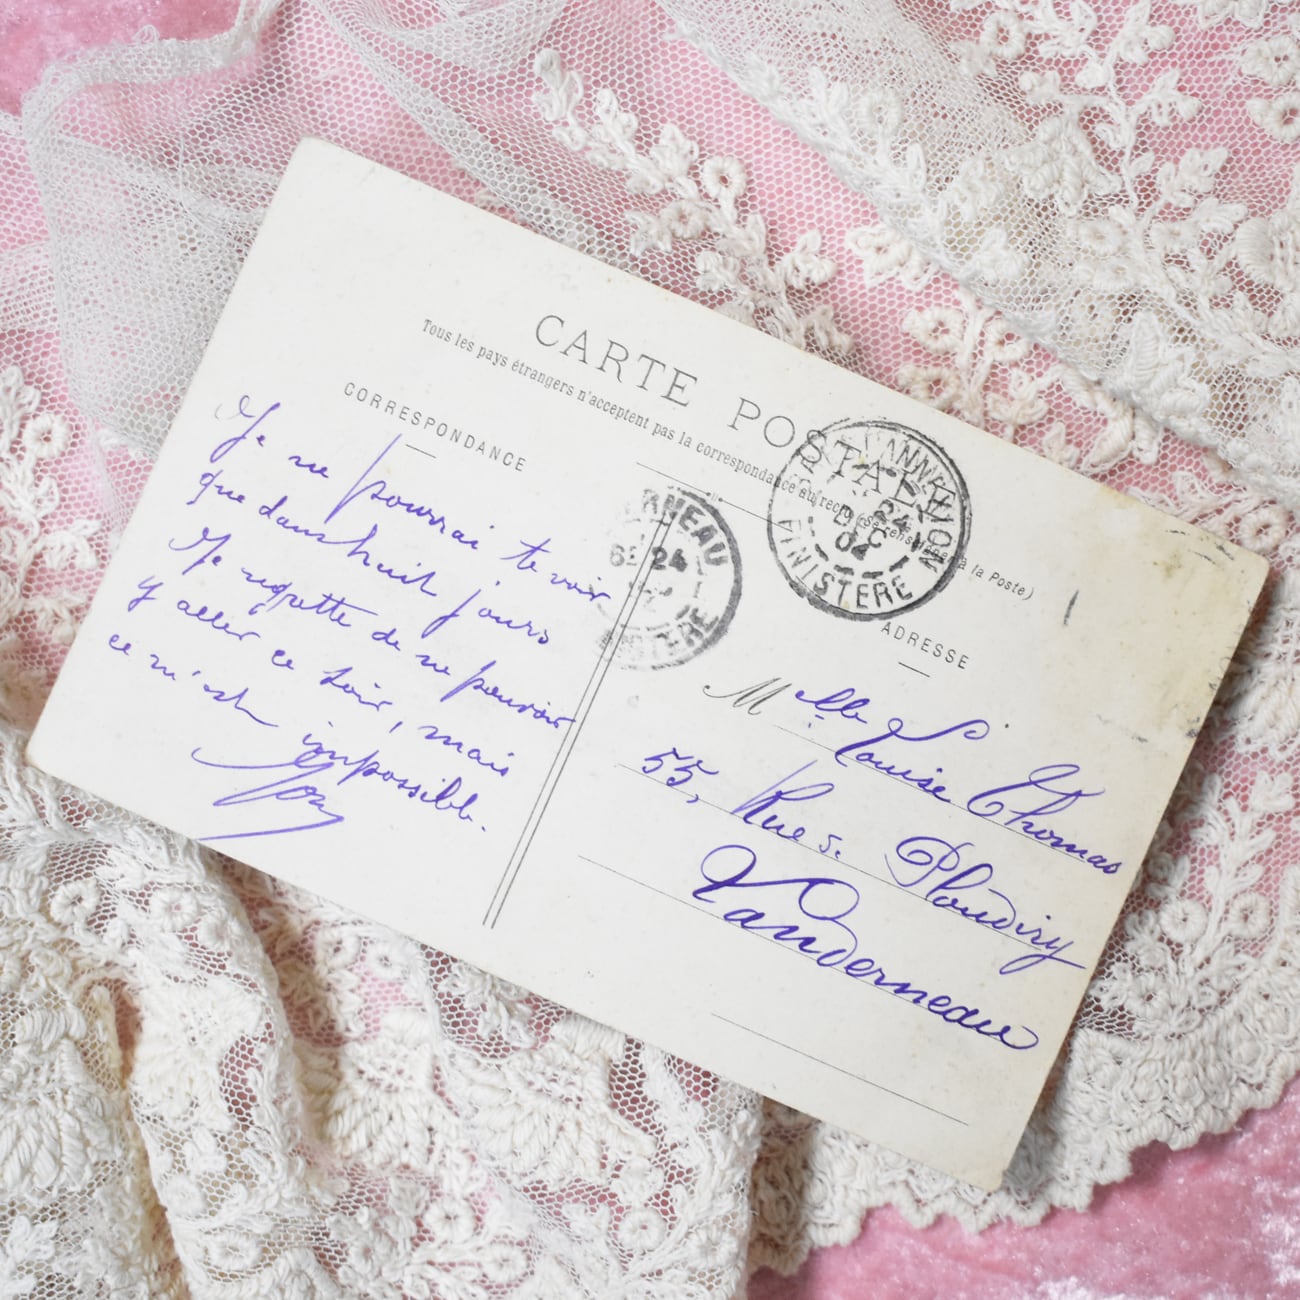 CARTE POSTALE
Tous les pays étrangers n'acceptent pas la correspondance au recto (Se renseigner à la Poste)
CORRESPONDANCE
Je ne pourrai te voir
que dans huit jours
Je regrette de ne pouvoir
y aller ce soir, mais
ce m'est impossible.
LANNEUFFRET
24
DEC
04
FINISTERE
ERNEAU
24
ADRESSE
Melle Louise Thomas
55, Rue s. Ploudiry
Landerneau